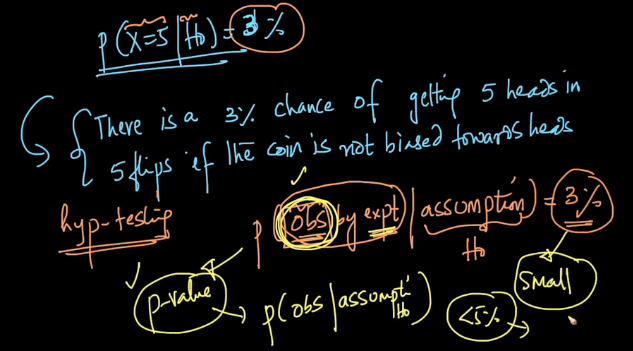 P(X=5|Ho) = 3%
There is a 3% chance of getting 5 heads in
5 flips if the coin is not biased towards heads
hyp-testing
P(obs by expt | assumption) = 3%
Ho
small
p-value → P(obs | assumptn Ho) <5% →